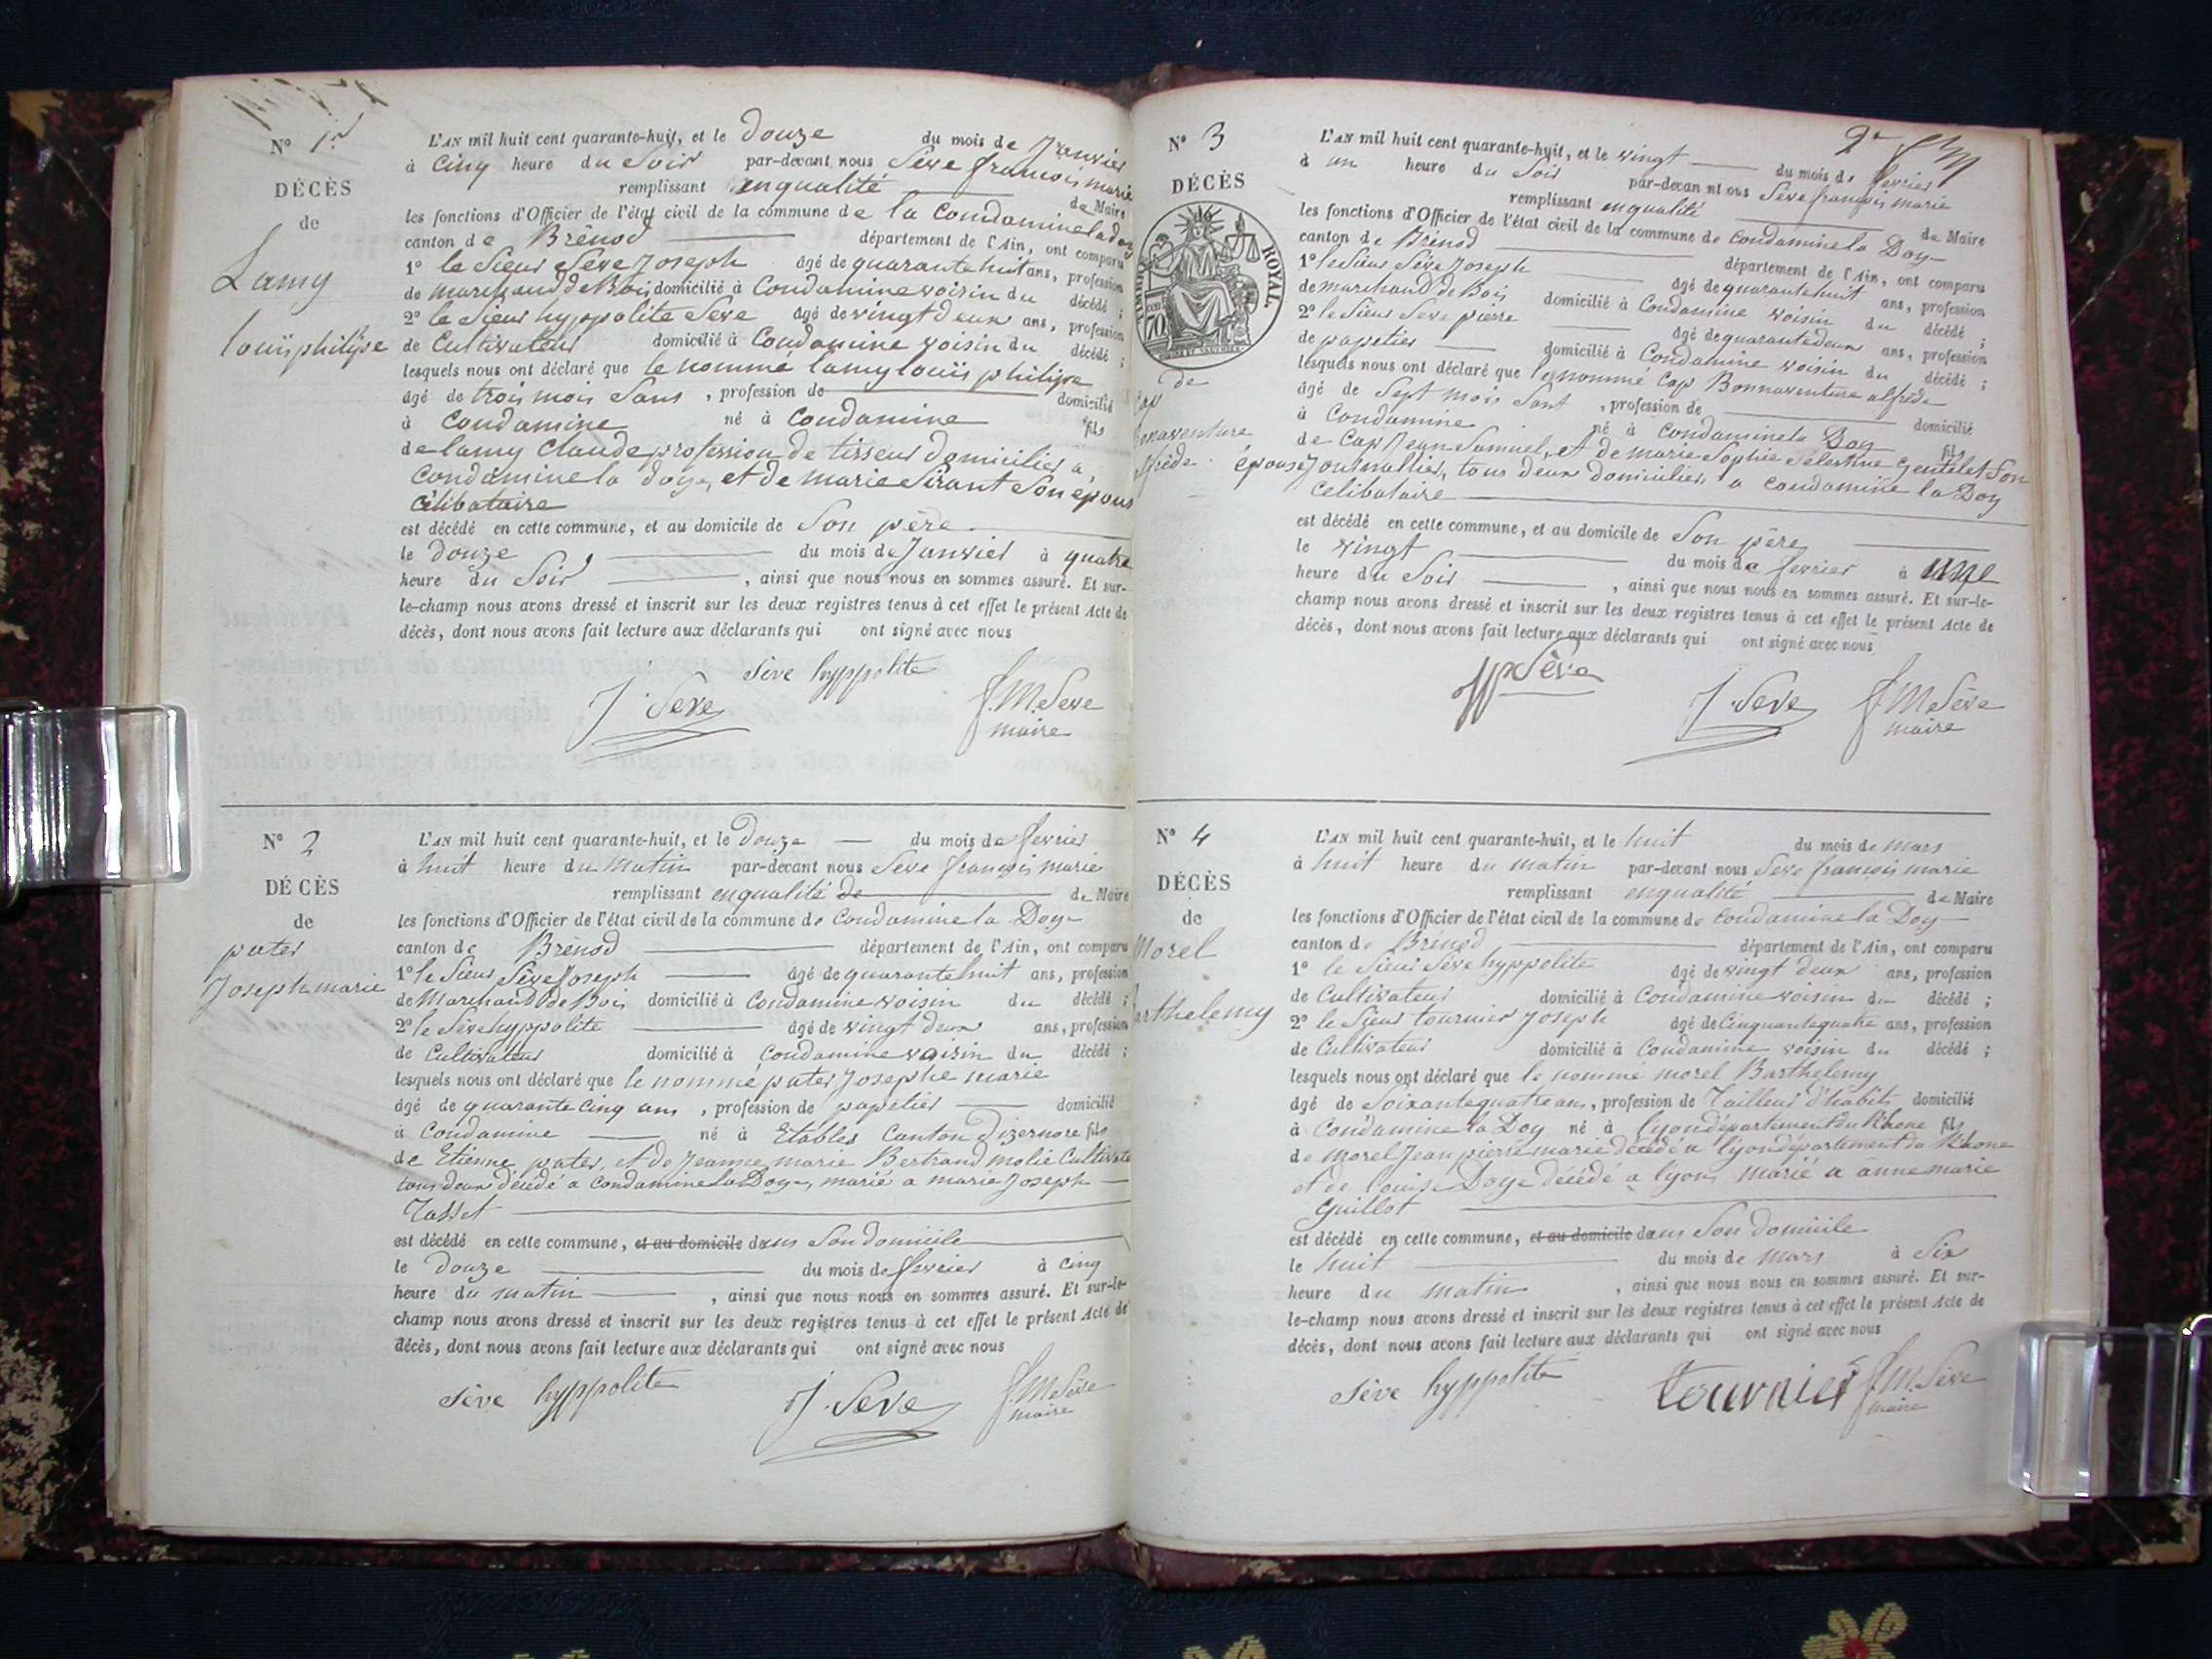 N° 1er
DÉCÈS
de
Lamy
louïs philipe
L'AN mil huit cent quarante-huit, et le douze du mois de Janvier
à cinq heure du Soir par-devant nous Sève francois marie
remplissant enqualité de Maire
les fonctions d'Officier de l'état civil de la commune de la Condamine ladoy
canton de Brénod département de l'Ain, ont comparu
1° le Sieur Sève Joseph âgé de quarante huit ans, profession
de marchand de Bois domicilié à Condamine voisin du décédé ;
2° le Sieur hyppolite Seve âgé de vingt deux ans, profession
de Cultivateur domicilié à Condamine voisin du décédé ;
lesquels nous ont déclaré que le nommé lamy louïs philipe
âgé de trois mois Sans , profession de domicilié
à Condamine né à Condamine fils
de lamy Claude profession de tisseur domicilier a
Condamine la doye, et de marie Sirant Son épous
célibataire
est décédé en cette commune, et au domicile de Son père
le douze du mois de Janvier à quatre
heure du Soir , ainsi que nous nous en sommes assuré. Et sur-
le-champ nous avons dressé et inscrit sur les deux registres tenus à cet effet le présent Acte de
décès, dont nous avons fait lecture aux déclarants qui ont signé avec nous
sève hyppolite
J. Seve
f. M. Seve
maire
N° 2
DÉCÈS
de
pater
Joseph marie
L'AN mil huit cent quarante-huit, et le Douze du mois de fevrier
à huit heure du Matin par-devant nous Seve françois marie
remplissant enqualité de de Maire
les fonctions d'Officier de l'état civil de la commune de Condamine la Doy
canton de Brénod département de l'Ain, ont comparu
1° le Sieur Sève Joseph âgé de quarante huit ans, profession
de Marchand de Bois domicilié à Condamine voisin du décédé ;
2° le Sève hyppolite âgé de vingt deux ans, profession
de Cultivateur domicilié à Condamine voisin du décédé ;
lesquels nous ont déclaré que le nommé pater Josephe marie
âgé de quarante cinq ans , profession de papetier domicilié
à Condamine né à Etables Canton Dizernore fils
de Etienne pater, et de Jeanne marie Bertrand molie Cultivate
tous deux décédé a Condamine la Doye, marié a marie Joseph
Tasset
est décédé en cette commune, et au domicile dans Son domicile
le douze du mois de fevrier à cinq
heure du matin , ainsi que nous nous en sommes assuré. Et sur-le-
champ nous avons dressé et inscrit sur les deux registres tenus à cet effet le présent Acte de
décès, dont nous avons fait lecture aux déclarants qui ont signé avec nous
sève hyppolite
J. Seve
f. M. Sève
maire
2e
N° 3
DÉCÈS
TIMBRE ROYAL
70
de
Cap
onaventure
lfrède
L'AN mil huit cent quarante-huit, et le vingt du mois de fevrier
à un heure du Soir par-devan nt ous Seve françois marie
remplissant enqualité de Maire
les fonctions d'Officier de l'état civil de la commune de Condamine la Doy
canton de Brénod département de l'Ain, ont comparu
1° le Sieur Sève Joseph âgé de quarante huit ans, profession
de marchand de Bois domicilié à Condamine voisin du décédé ;
2° le Sieur Seve pierre âgé de quarante deux ans, profession
de papetier domicilié à Condamine voisin du décédé ;
lesquels nous ont déclaré que le nommé Cap Bonnaventure alfrède
âgé de Sept mois Sant , profession de domicilié
à Condamine né à Condamine la Doy fils
de Cap Jean Samuel, et de marie Sophie Selestine Gentilet Son
épouse Journallier, tous deux domicilier a Condamine la Doy
Celibataire
est décédé en cette commune, et au domicile de Son père
le vingt du mois de fevrier à une
heure du Soir , ainsi que nous nous en sommes assuré. Et sur-le-
champ nous avons dressé et inscrit sur les deux registres tenus à cet effet le présent Acte de
décès, dont nous avons fait lecture aux déclarants qui ont signé avec nous
Sève
J. Seve
f. M. Sève
maire
N° 4
DÉCÈS
de
Morel
arthelemy
L'AN mil huit cent quarante-huit, et le huit du mois de mars
à huit heure du matin par-devant nous Seve francois marie
remplissant enqualité de Maire
les fonctions d'Officier de l'état civil de la commune de Condamine la Doy
canton de Brénod département de l'Ain, ont comparu
1° le Sieur Sève hyppolite âgé de vingt deux ans, profession
de Cultivateur domicilié à Condamine voisin du décédé ;
2° le Sieur tournier Joseph âgé de Cinquante quatre ans, profession
de Cultivateur domicilié à Condamine voisin du décédé ;
lesquels nous ont déclaré que le nommé morel Barthelemy
âgé de Soixante quatre ans, profession de Tailleur d'habits domicilié
à Condamine la Doy né à lyon département du Rhone fils
de morel Jean pierre marie décédé a lyon département du Rhone
et de louise Doye décédé a lyon, marié a anne marie
Guillot
est décédé en cette commune, et au domicile dans Son domicile
le huit du mois de mars à Six
heure du matin , ainsi que nous nous en sommes assuré. Et sur-
le-champ nous avons dressé et inscrit sur les deux registres tenus à cet effet le présent Acte de
décès, dont nous avons fait lecture aux déclarants qui ont signé avec nous
sève hyppolite
tournier
f. M. Sève
maire